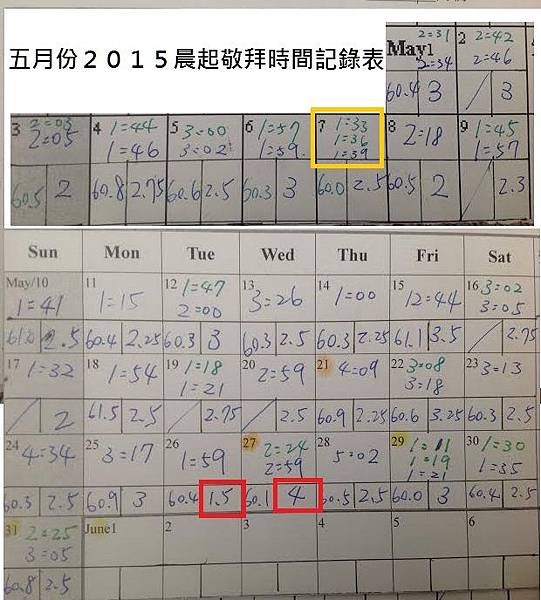 五月份２０１５晨起敬拜時間記錄表
May1 2=31 2=34
2 2=42 2=46
60.4 3 / 3
3 2=03 2=05
4 1=44 1=46
5 3=00 3=02
6 1=57 1=59
7 1=33 1=36 1=39
8 2=18
9 1=45 1=57
60.5 2 60.8 2.75 60.6 2.5 60.3 3 60.0 2.5 60.5 2 / 2.3
Sun Mon Tue Wed Thu Fri Sat
May/10 1=41
11 1=15
12 1=47 2=00
13 3=26
14 1=00
15 12=44
16 3=02 3=05
61.0 2.5 60.4 2.25 60.3 3 60.3 2.5 60.3 2.25 61.1 3.5 / 2.75
17 1=32
18 1=54
19 1=18 1=21
20 2=59
21 4=09
22 3=08 3=18
23 3=13
/ 2 61.5 2.5 / 2.75 / 2.5 60.9 2.25 60.6 3.25 60.3 2.5
24 4=34
25 3=17
26 1=59
27 2=24 2=59
28 5=02
29 1=11 1=19 1=21
30 1=30 1=35
60.3 2.5 60.9 3 60.4 1.5 60.1 4 60.5 2.5 60.0 3 60.4 2.5
31 2=25 3=05
June1 2 3 4 5 6
60.8 2.5